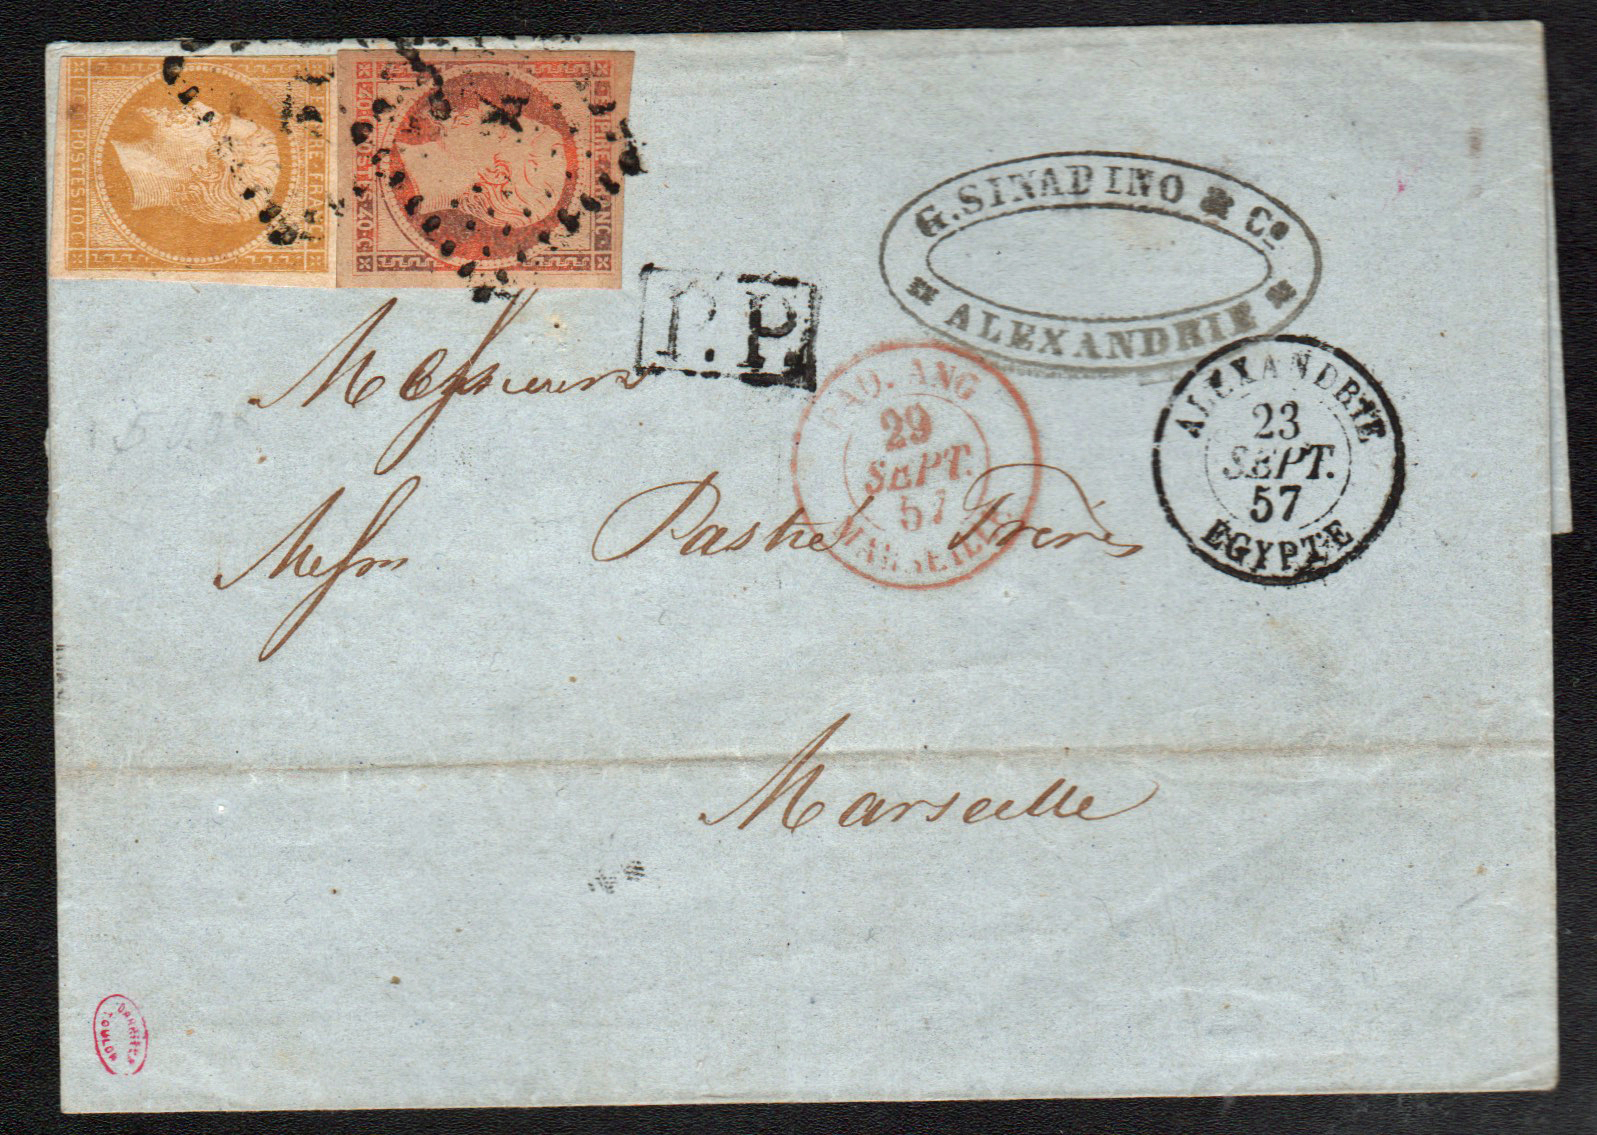 10 C POSTES 10 C
40 C POSTES 40 C
P.P.
G. SINADINO & Co
ALEXANDRIE
PAQ. ANG
29
SEPT.
57
MARSEILLE
ALEXANDRIE
23
SEPT.
57
EGYPTE
Messieurs
Messrs Pastré Frères
Marseille
TOULON